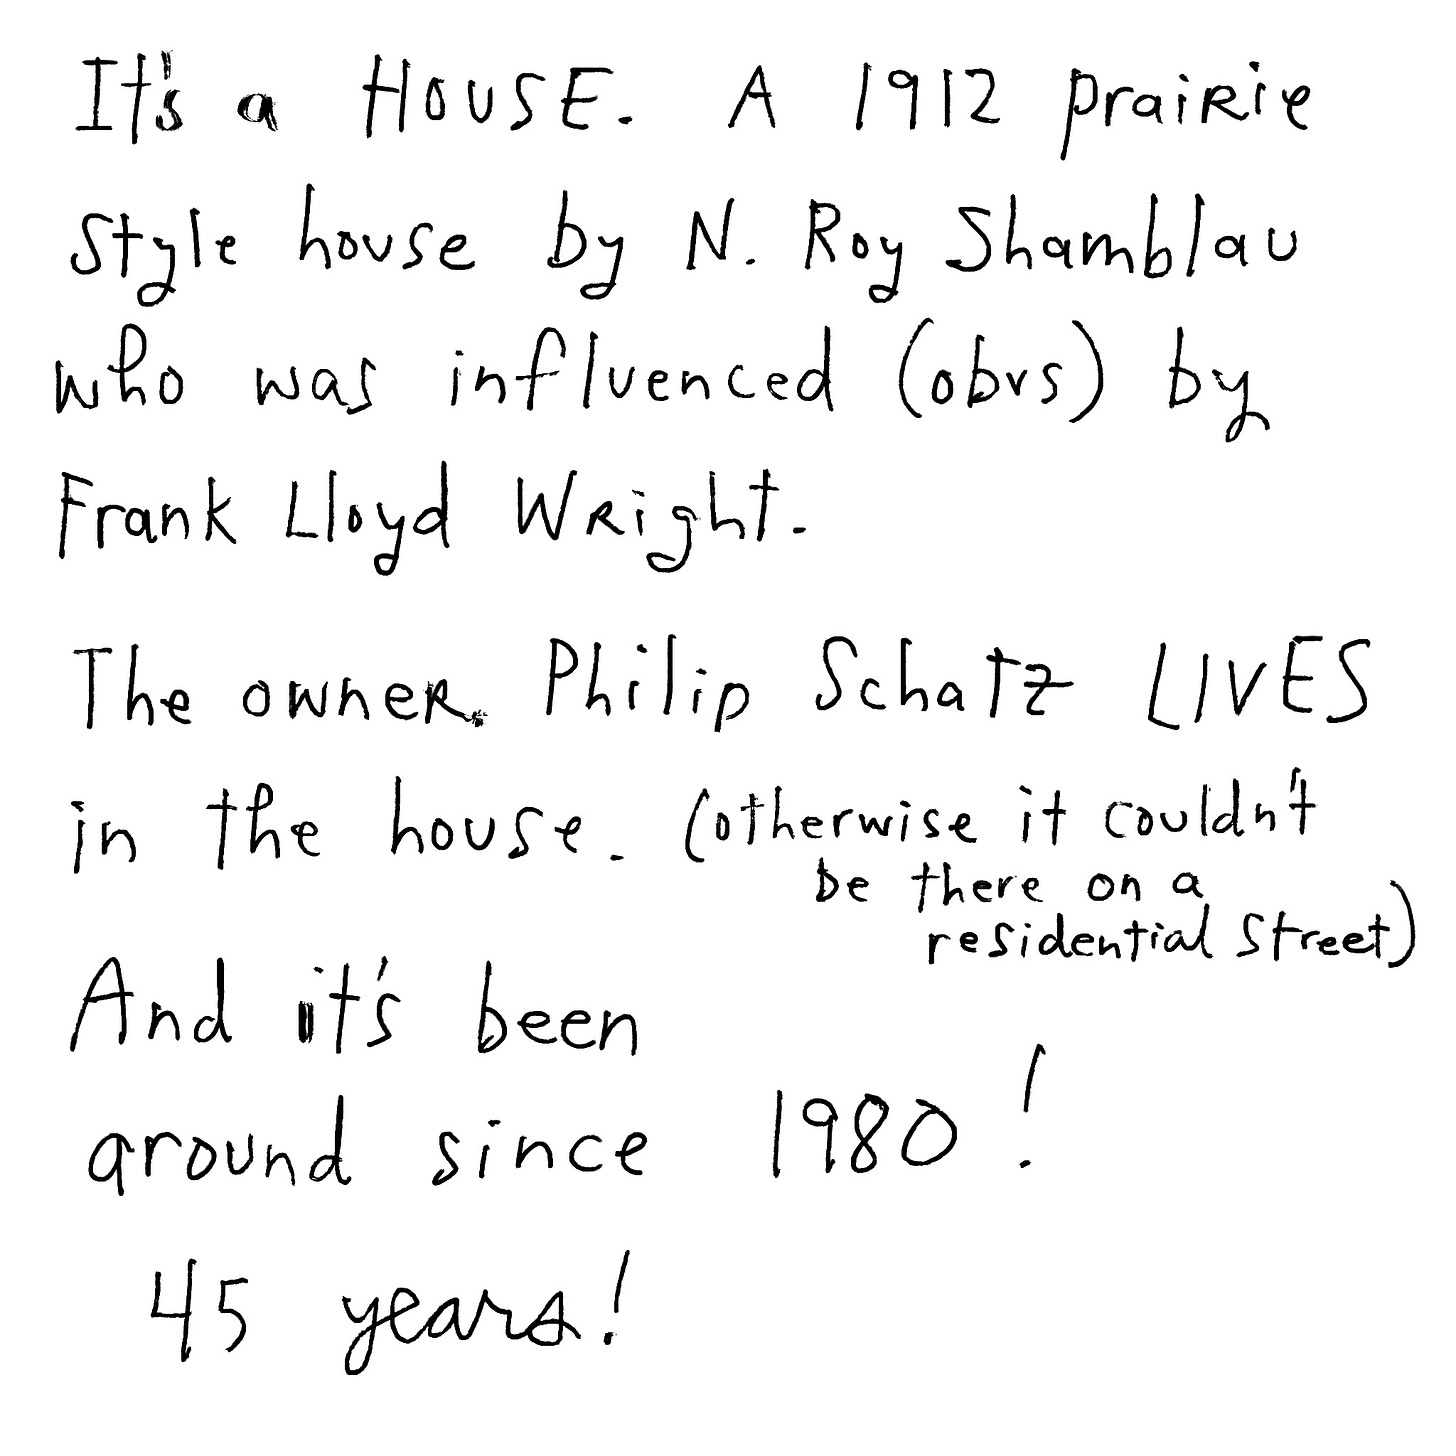 It's a HOUSE. A 1912 prairie
style house by N. Roy Shamblau
who was influenced (obvs) by
Frank Lloyd Wright.
The owner Philip Schatz LIVES
in the house. (otherwise it couldn't
be there on a
residential street)
And it's been
around since 1980!
45 years!